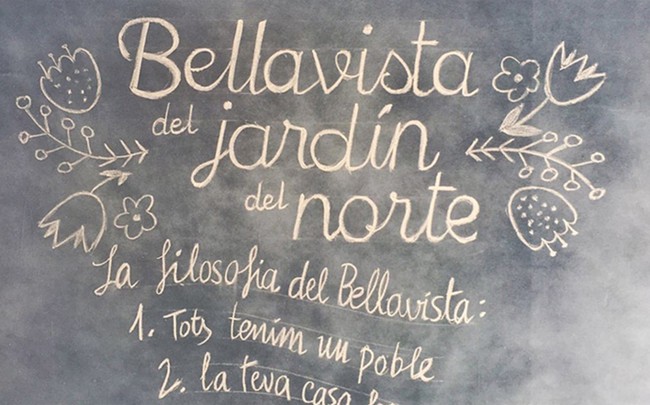 Bellavista
del jardín
del norte
La filosofia del Bellavista:
1. Tots tenim un poble
2. la teva casa